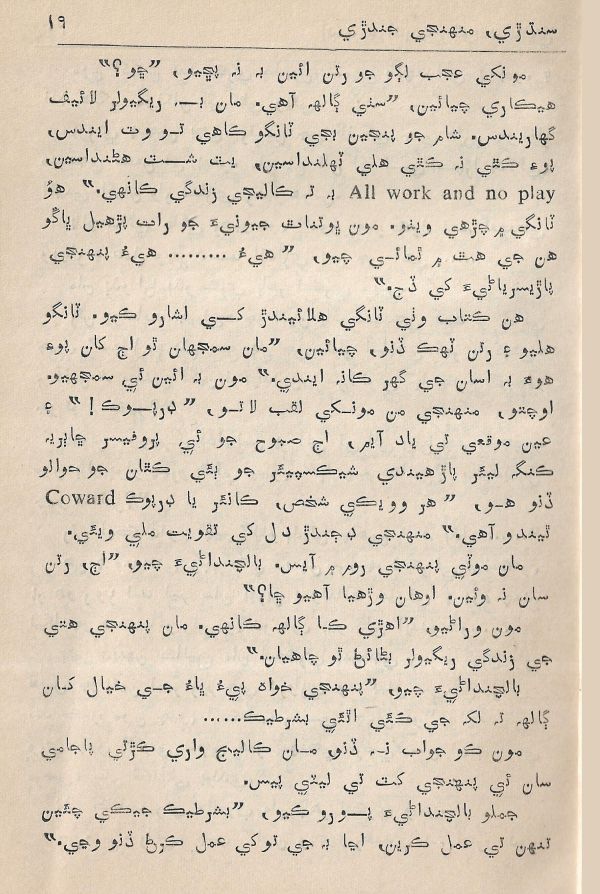 سنڌڙي، منهنجي جندڙي ١٩
مونکي عجب لڳو جو رتن ائين به نه پڇيو، ”ڇو؟“
هيڪاري چيائين، ”سٺي ڳالهه آهي. مان بـه ريگيولر لائيف
گهاريندس. شام جو پنجين بجي ٽانگو ڪاهي تـو وٽ ايندس،
پوءِ ڪٿي نه ڪٿي هلي ٽهلنداسين، پٽ شـٽ هڻنداسين،
All work and no play به ته ڪاليجي زندگي ڪانهي.“ هوُ
ٽانگي ۾ چڙهي ويٺو. مون ڀوتنات جيونيءَ جو رات پڙهيل ڀاڱو
هن جي هٿ ۾ ٿمائـي چيو، ”هيءُ ......... هيءُ پنهنجي
پاڙيسرياڻيءَ کي ڏج.“
هن ڪتاب وٺي ٽانگي هلائيندڙ کـي اشارو ڪيو. ٽانگو
هليو ۽ رتن ٽهڪ ڏنو، چيائين، ”مان سمجهان ٿو اڄ کان پوءِ
هوءَ به اسان جي گهر ڪانه ايندي.“ مون به ائين ئي سمجهيو.
اوچتو، منهنجي من مونـکي لقب لاٿـو، ”ڊرپـوڪ!“ ۽
عين موقعي تي ياد آيم، اڄ صبوح جو ئي پروفيسر ڇاٻريه
ڪنگ ليئر پاڙهيندي شيڪسپيئر جو ٻئي ڪٿان جو حوالو
ڏنو هـو، ”هر وويڪي شخص، ڪائر يا ڊرپوڪ Coward
ٿيندو آهي.“ منهنجي ڊڄندڙ دل کي تقويت ملي ويئي.
مان موٽي پنهنجي روم ۾ آيس. بالچنداڻيءَ چيو، ”اڄ، رتن
سان نه وئين. اوهان وڙهيا آهيو ڇا؟“
مون وراڻيو، ”اهڙي ڪـا ڳالهه ڪانهي. مان پنهنجي هتي
جي زندگي ريگيولر بڻائڻ ٿو چاهيان.“
بالچنداڻيءَ چيو، ”پنهنجي خواه پيءُ ماءُ جـي خيال کـان
ڳالهه ته لک جي ڪئي اٿئي بشرطيڪ......
مون ڪو جواب نـه ڏنو، مـان ڪاليج واري ڪڙتي پاجامي
سان ئي پنهنجي کٽ تي ليٽي پيس.
جملو بالچنداڻيءَ پـورو ڪيو، ”بشرطيڪ جيڪي چئين
تنهن تي عمل ڪرين، اڃا به جي توکي عمل ڪرڻ ڏنو وڃي.“